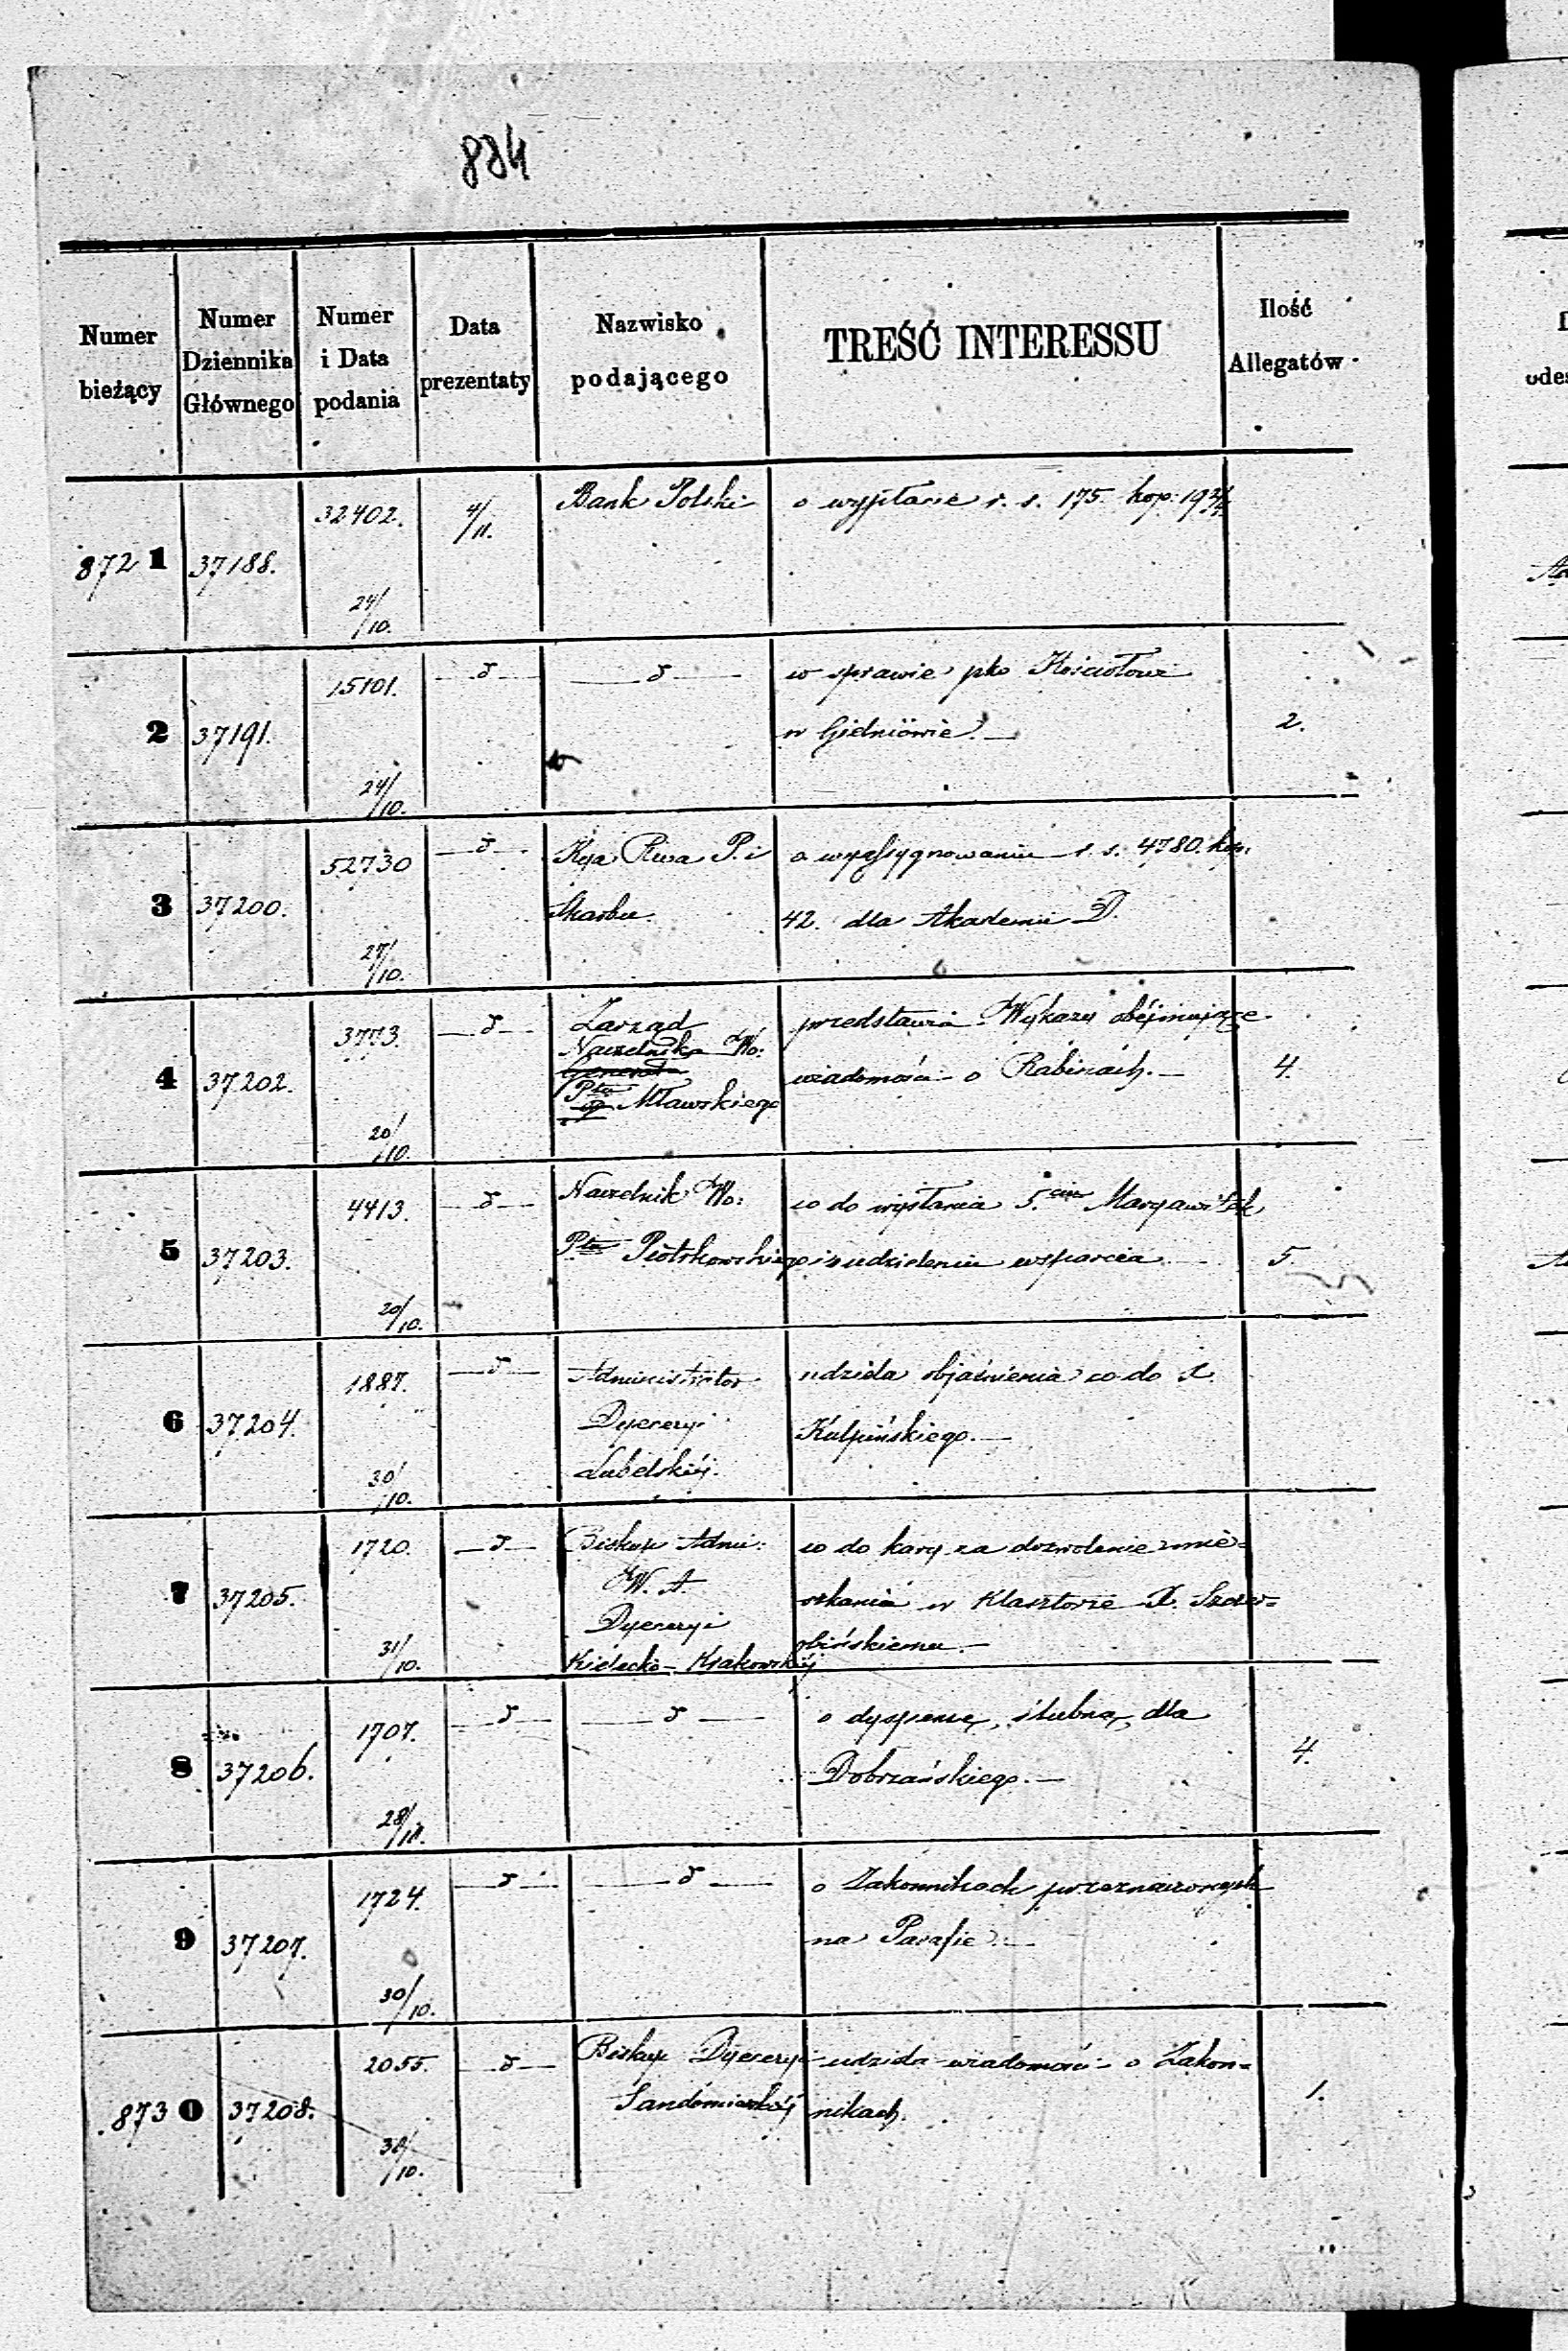 884
Numer bieżący
Numer Dziennika Głównego
Numer i Data podania
Data prezentaty
Nazwisko podającego
TREŚĆ INTERESSU
Ilość Allegatów
8721 37188. 32402. 24/10. 4/11. Bank Polski o wypłacie r. s. 175. kop: 19
2 37191. 15101. 24/10. — d — — d — w sprawie pko Kościołowi
w Gielniowie. — 2.
3 37200. 52730 27/10. — d — Kya Rwa P. i o wyassygnowanie r. s. 4780. kop.
Skarbu 42. dla Akademii D.
4 37202. 3773. 20/10. — d — Zarząd przedstawia Wykazy obéjmujące
Naczelnika Wo: wiadomości o Rabinach. — 4.
Pttu Mławskiego
5 37203. 4413. 20/10. — d — Naczelnik Wo: co do wysłania 5.ciu Maryawitek
Pttu Piotrkowskiego i o udzielenie wsparcia 5.
6 37204. 1887. 30/10. — d — Administrator udziela objaśnienia co do X.
Dyecezyi Kulpińskiego. —
Lubelskiéj.
7 37205. 1720. 31/10. — d — Biskup Admi: co do kary za dozwolenie zmie-
W. A. szkania w Klasztorze X.
Dyecezyi bińskiemu. —
Kielecko-Krakowskiéj
8 37206. 1707. 28/ — d — — d — o dyspensę ślubną dla
Dobrzańskiego. — 4.
9 37207. 1724. 30/10. — d — — d — o Zakonnikach przeznaczonych
na Parafie. —
8730 37208. 2055. /10. — d — Biskup Dyecezyi udziela wiadomości o Zakon-
Sandomierskiéj nikach. 1.